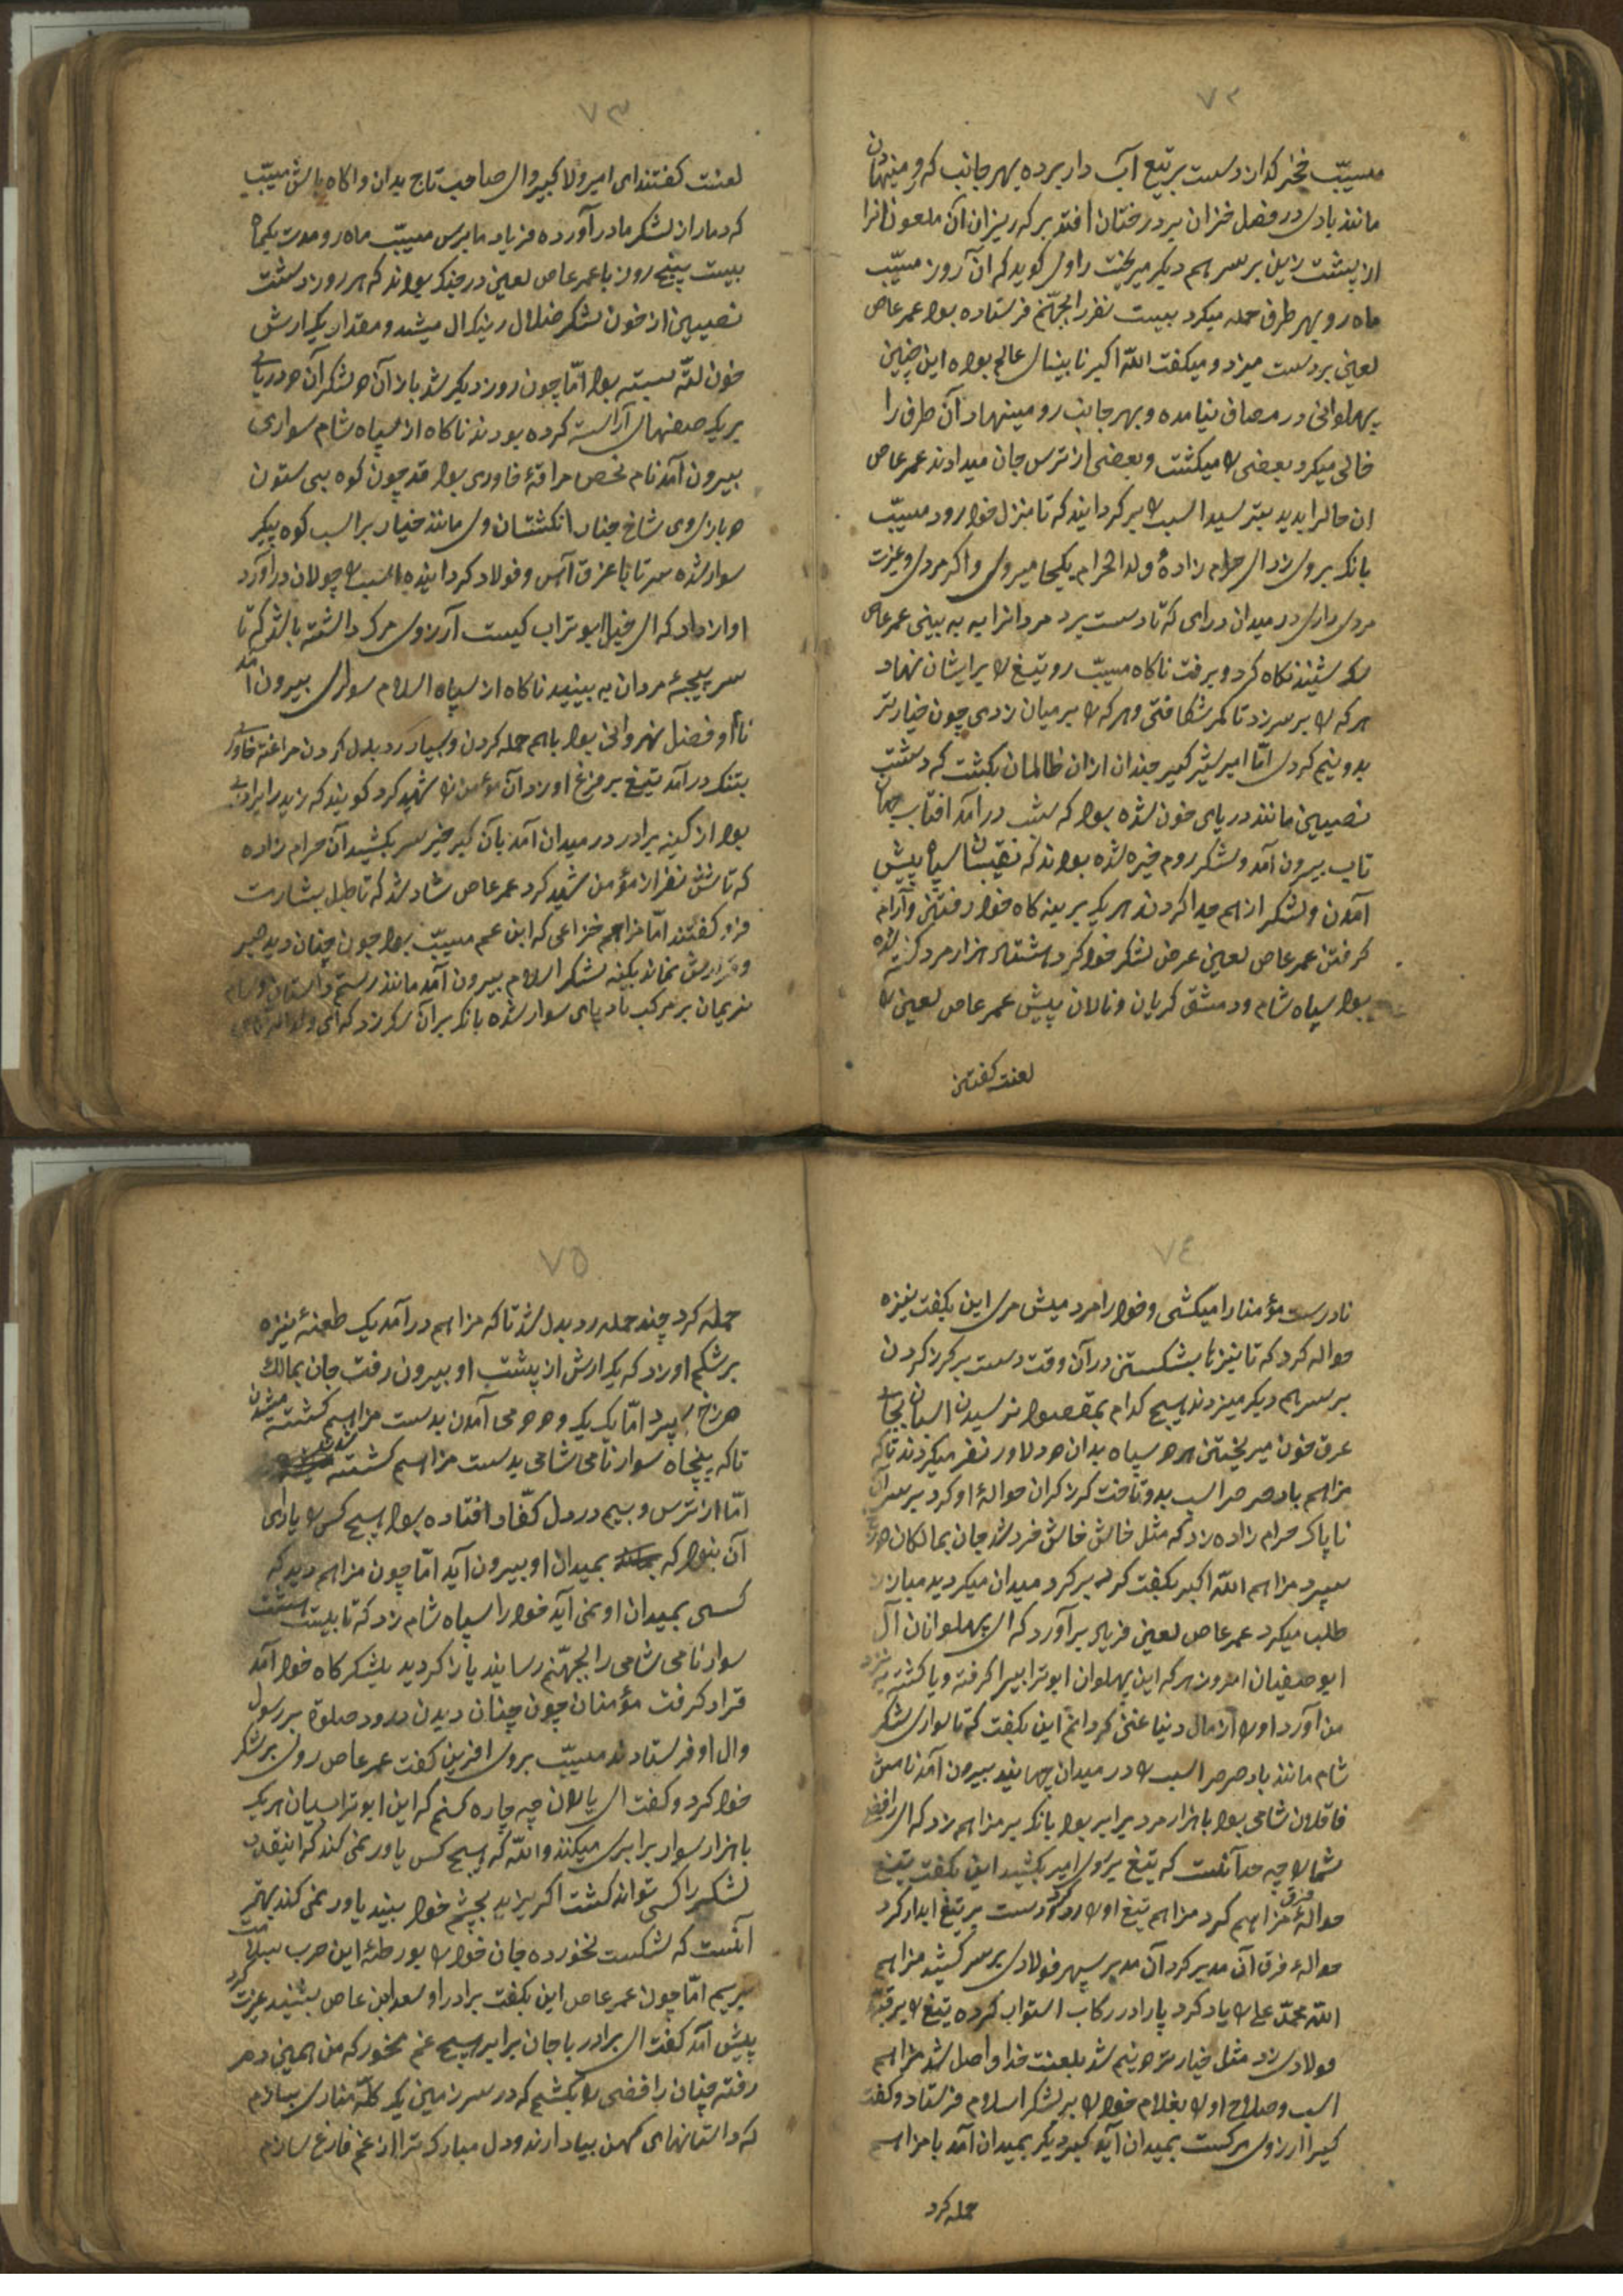 ٧٢
مسیّب خنجر گذار دست بر تیغ آب دار برده بهر جانب که رو مینهادن
مانند بادی در فصل خزان بر درختان افتد برکه ریزان آن ملعونانرا
از پشت زین بر سر هم دیکر میریخت راوی کوید که آن روز مسیّب
ماه رو بهر طرف حمله میکرد بیست نفر را بجهنّم فرستاده بود عمر عاص
لعین بر دست میزد و میکفت اللّه اکبر تا بینای عالم بوده این چنین
پهلوانی در مصاف نیامده و بهر جانب رو مینهاد آن طرف را
خالی میکرد بعضی را میکشت و بعضی از ترس جان میدادند عمر عاص
ان حالرا بدید بترسید اسب را بر کردانید که تا بمنزل خود رود مسیّب
بانک بر وی زد ای حرام زادهٔ ولد الحرام بکجا میروی و اکر مردی و عزت
مردی داری در میدان درای که تا دست برد مردانرا به بینی عمر عاص
شنید نکاه کرد و برفت ناکاه مسیّب رو تیغ را بر ایشان نهاد
هر که را بر سر زد تا کمر شکافتی و هر که را بر میان زدی چون خیارتر
بدو نیم کردی امّا امیر شیر کیر چندان از ان ظالمان بکشت که دشت
نصیبین مانند دریای خون شده بود که شب درآمد افتاب جهان
تاب بیرون آمد و لشکر روم خیره شده بودند که نقیبان سپاه پیش
آمدن و لشکر از هم جدا کردند هر یک بر بنه کاه خود رفتن و آرام
کرفتن عمر عاص لعین عرض لشکر خود کرد هشتاد هزار مرد کشته شده
بود سپاه شام و دمشق کریان و نالان پیش عمر عاص لعین را
لعنت کفتن
٧٣
لعنت کفتند ای امیر ولا کبیر و ای صاحب تاج بدان و اکاه باش مسیّب
که دمار از لشکر ما در آورده فریاد ما برس مسیّب ماه رو مدت یکماه
بیست پنج روز با عمر عاص لعین در جنک بودند که هر روز دشت
نصیبین از خون لشکر ضلال رنک ال میشد و مقدار یک ارش
خون لتّه بسته بود امّا چون روز دیکر شد باز آن دو لشکر آن دو دریای
بریک صفهای آراسته کرده بودند ناکاه از سپاه شام سواری
بیرون آمد نام نحص مراقهٔ خاوری بود قد چون کوه بی ستون
دو بازوی وی شاخ چنار انکشتان وی مانند خیار بر اسب کوه پیکر
سوار شده سر تا پا غرق آهن و فولاد کردانیده اسب را جولان درآورد
اواز داد که ای خیل ابوتراب کیست آرزوی مرک داشته باشد که تا
سر پنجهٔ مردان به بینید ناکاه از سپاه اسلام سواری بیرون آمد
نام او فضل نهروانی بود باهم حمله کردن و بسیار رد بدل کردن مراغه خاوری
بتنک درآمد تیغ بر فرغ او زد آن مؤمن را شهید کرد کویند که زید را برادری
بود از کینه برادر در میدان آمد بآن کبر خیره سر بکشید آن حرام زاده
که تا شش نفر از مؤمن شهید کرد عمر عاص شاد شد که تا طبل بشارت
فرو کفتند امّا مزاحم خزاعی که ابن عم مسیّب بود چون چنان دید صبر
و قرارش نماند بکینه لشکر اسلام بیرون آمد مانند رستم داستان و سام
نریمان بر مرکب بادپای سوار شده بانک بر آن سک زد که ای ولد الزناء
٧٤
نادرست مؤمنانرا میکشی و خود را مرد میشمری این بکفت نیزه
حواله کرد که تا نیزها بشکستن در آن وقت دست بر کرز کردن
بر سر هم دیکر میزدند هیچ کدام بمقصود نرسیدن اسبان بجای
عرق خون میریختن هر دو سپاه بدان دو دلاور نظر میکردند تا که
مزاهم باد صرصر اسب بدو تاخت کرز کران حوالهٔ او کرد بر سر ان
ناپاک حرام زاده زد که مثل خاش خاش خرد شد جان بمالکان دوزخ
سپرد مزاهم اللّه اکبر بکفت کرد بر کرد میدان میکردید مبارز
طلب میکرد عمر عاص لعین فریاد برآورد که ای پهلوانان آل
ابو صفیان امروز هر که این پهلوان ابوترابیرا کرفته و یا کشته به نزد
من آورد او را از مال دنیا غنی کردانم این بکفت که تا سواری لشکر
شام مانند باد صرصر اسب را در میدان جهانید بیرون آمد نامش
فاقلون شامی بود با هزار مرد برابر بود بانک بر مزاهم زد که ای رافضی
شما را چه حد آنست که تیغ بروی امیر بکشید این بکفت تیغ
حوالهٔ فرق مزاهم کرد مزاهم تیغ او را رد کرد دست بر تیغ ابدار کرد
حوالهٔ فرق آن مدبر کرد آن مدبر سپر فولادی بر سر کشید مزاهم
اللّه محمّد علی را یاد کرد پا را در رکاب استوار کرده تیغ را بر قبّهٔ
فولادی زد مثل خیارتر دو نیم شد بلعنت خدا واصل شد مزاهم
اسب و صلاح او را بغلام خود را بر لشکر اسلام فرستاد و کفت
کیرا ارزوی مرکست بمیدان آید کبر دیکر بمیدان آمد با مزاهم
حمله کرد
٧٥
حمله کرد چند حمله رد بدل شد تا که مزاهم درآمد یک طعنهٔ نیزه
بر شکم او زد که یک ارش از پشت او بیرون رفت جان بمالک
دوزخ سپرد امّا یک یک و دو دو می آمدن بدست مزاهم کشته میشدن
تا که پنجاه سوار نامی شامی بدست مزاهم کشته شدند
امّا از ترس و بیم در دل کفّار افتاده بود هیچ کس را یارای
آن نبود که بمیدان او بیرون آید امّا چون مزاهم دید که
کسی بمیدان او نمی آید خود را سپاه شام زد که تا بیست هشت
سوار نامی شامی را بجهنّم رسانید باز کردید بلشکر کاه خود آمد
قرار کرفت مؤمنان چون چنان دیدن درود صلوة بر رسول
و ال او فرستادند مسیّب بروی افرین کفت عمر عاص روی بر لشکر
خود کرد و کفت ای یاران چه چاره کنم که این ابوترابیان هر یک
با هزار سوار برابری میکنند واللّه که هیچ کس باور نمی کند که اینقدر
لشکر را کسی تواند کشت اکر یزید بچشم خود ببیند باور نمی کند بهتر
آنست که شکست نخورده جان خود را بورطهٔ این حرب سلامت
بریم امّا چون عمر عاص این بکفت برادر او سعد ابن عاص بشنید غیرت کرد
پیش آمد کفت ای برادر با جان برابر هیچ غم مخور که من همین دم
رفته چنان رافضی را بکشیم که در سر زمین یک کلّه مناری بسازم
که داستانهای کهن بیاد ارند و دل مبارک ترا از غم فارغ سازم